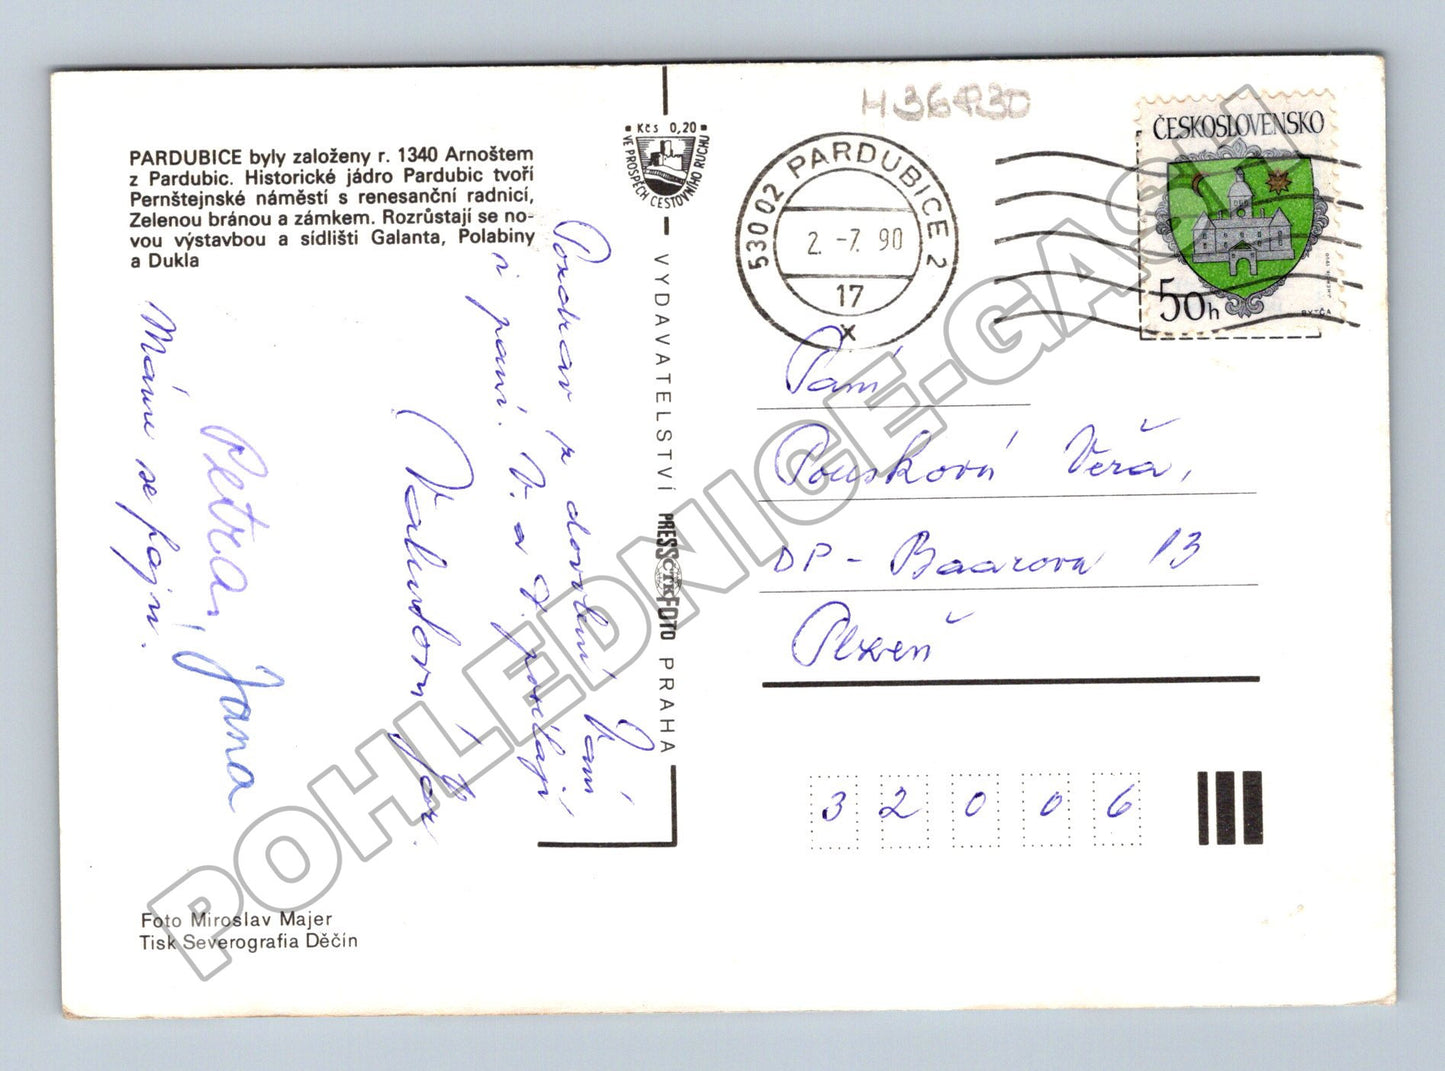 H36430
PARDUBICE byly založeny r. 1340 Arnoštem
z Pardubic. Historické jádro Pardubic tvoří
Pernštejnské náměstí s renesanční radnicí,
Zelenou bránou a zámkem. Rozrůstají se no-
vou výstavbou a sídlišti Galanta, Polabiny
a Dukla
Kčs 0,20
VE PROSPĚCH CESTOVNÍHO RUCHU
VYDAVATELSTVÍ PRESSFOTO PRAHA
ČTK
53002 PARDUBICE 2
2. -7. 90
17
x
ČESKOSLOVENSKO
50h
BYTČA
Pozdrav z dovolené Vám
paní. V. a J. posílají
Máme se fajn.
Petra, Jana
Paní
Pousková Věra,
DP - Baarova 13
Plzeň
32006
Foto Miroslav Majer
Tisk Severografia Děčín
POHLEDNICE-GASH